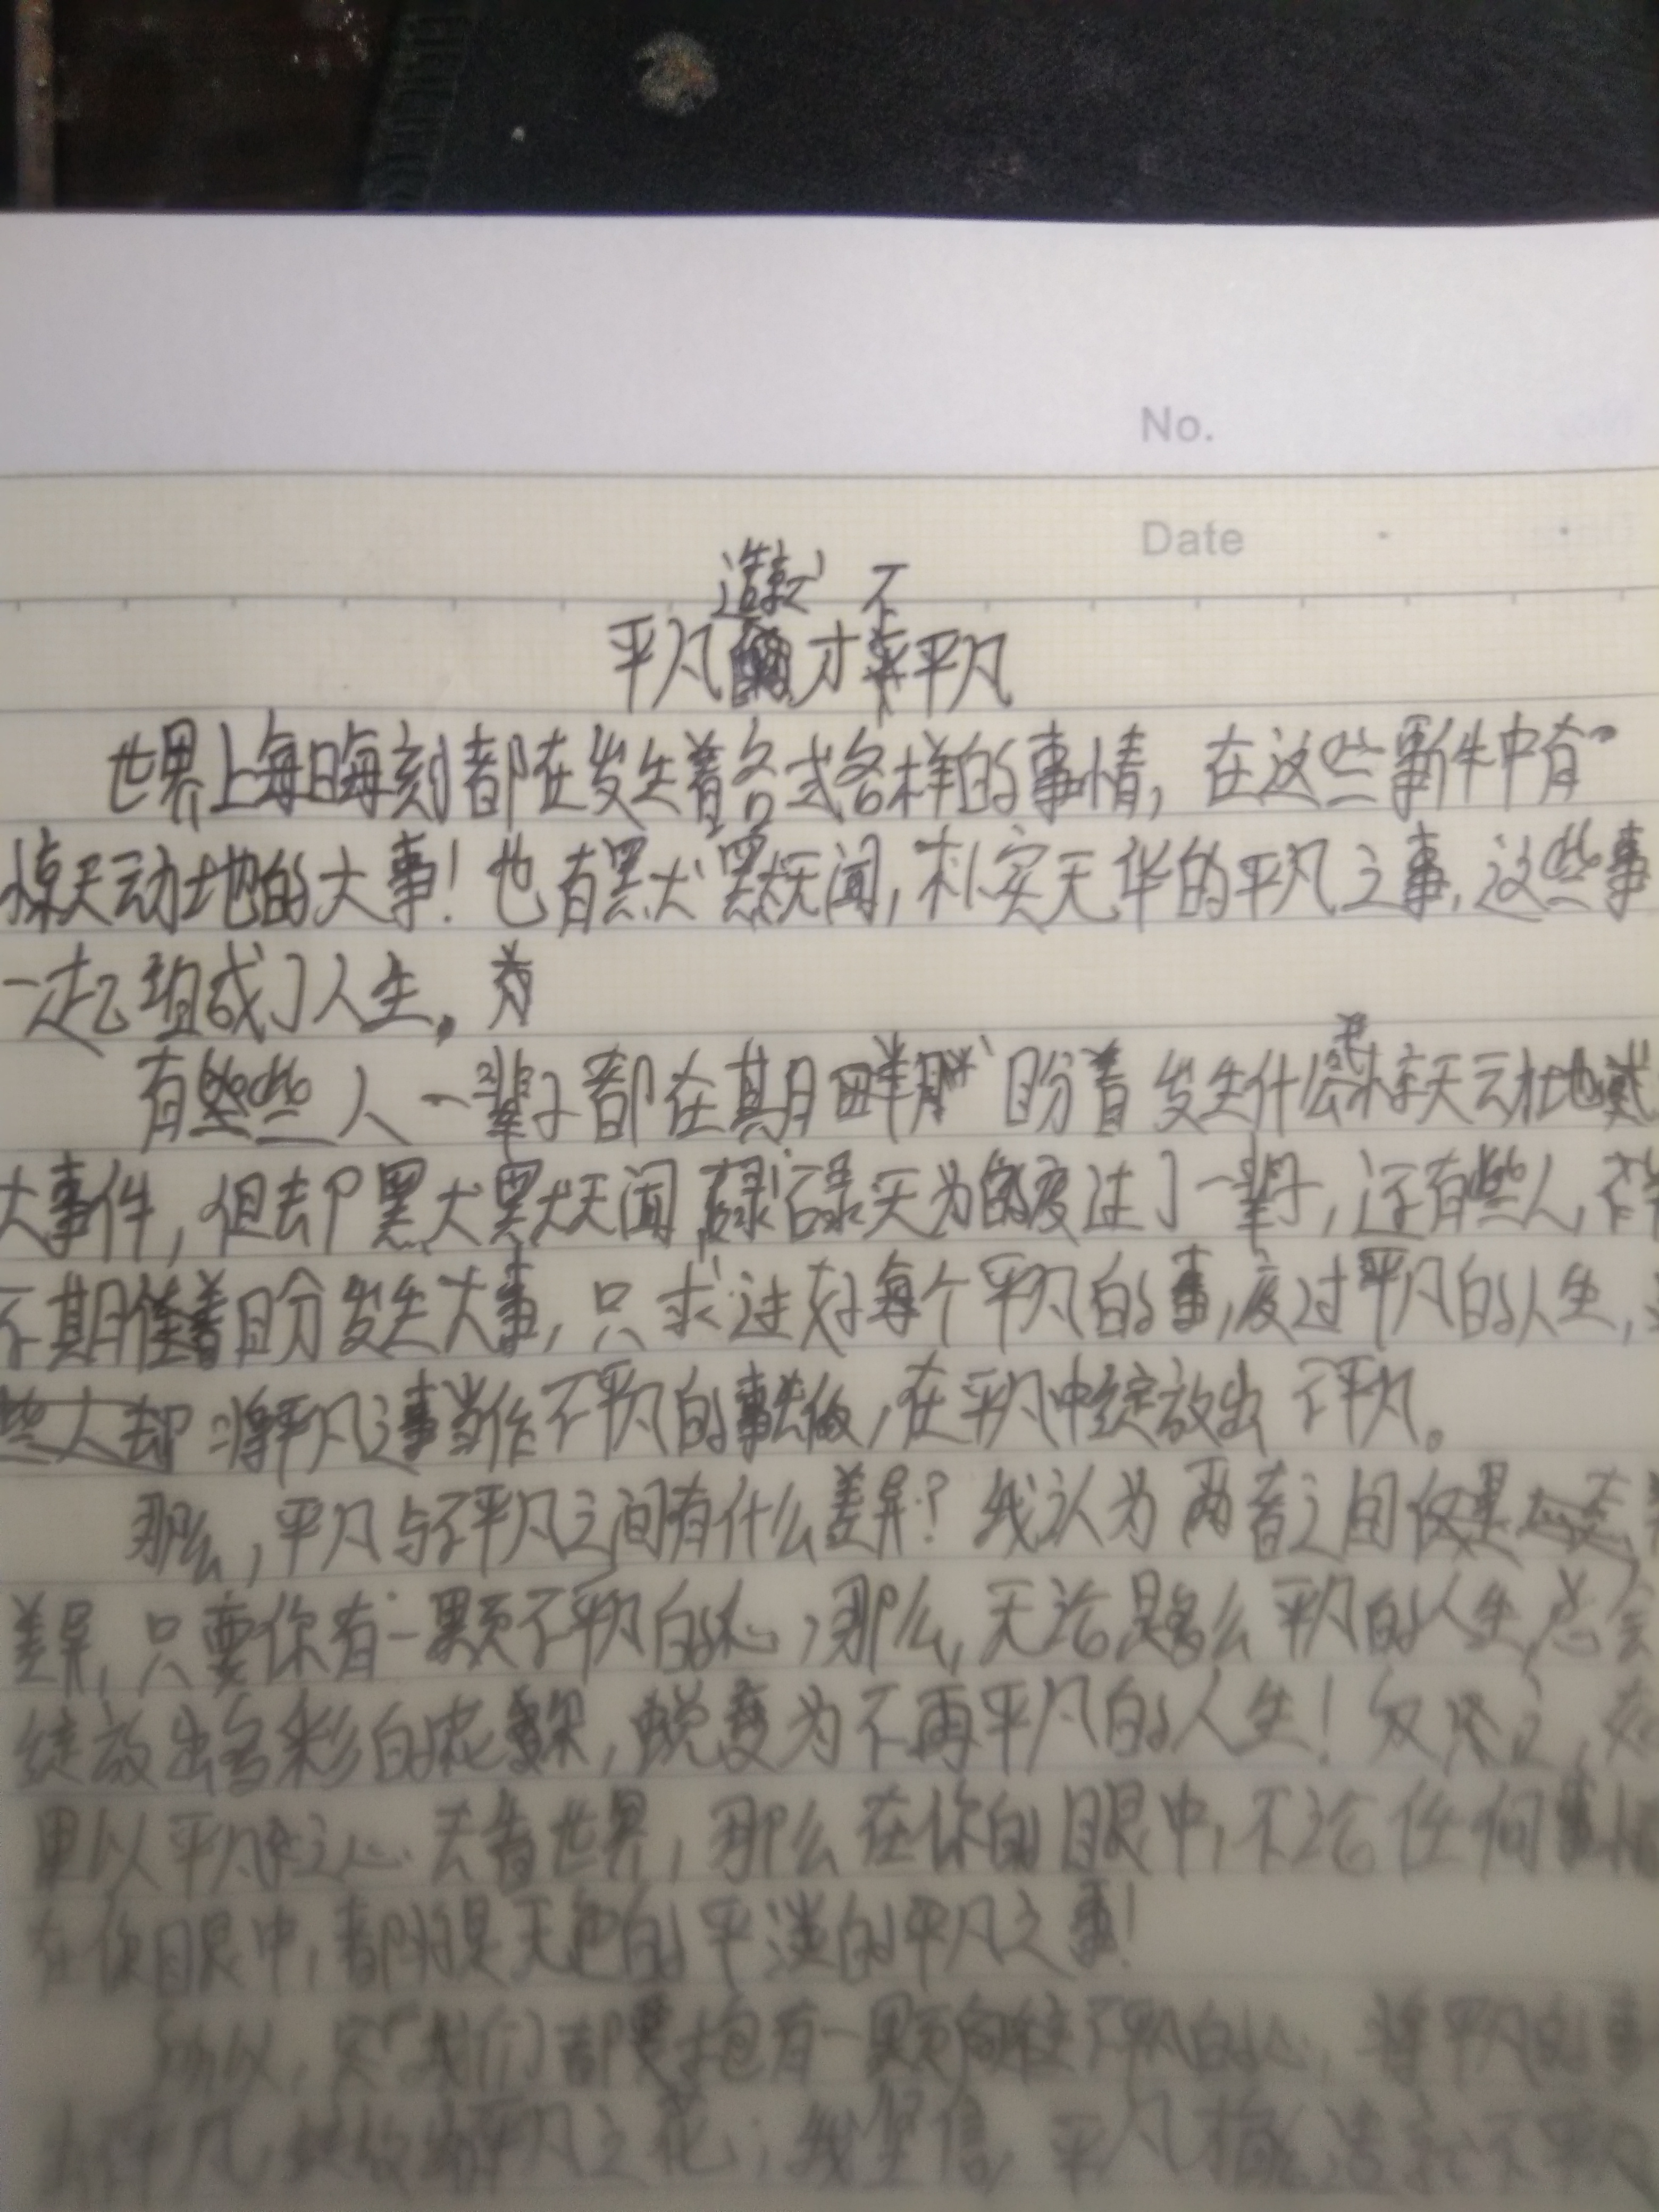 No.
Date
造就 不
平凡才平凡
世界上每时每刻都在发生着各式各样的事情,在这些事件中有
惊天动地的大事!也有默默无闻,朴实无华的平凡之事,这些事
一起组成了人生。
有些人一辈子都在期盼着发生什么惊天动地
大事件,但却默默无闻碌碌无为的度过了一辈子,还有些人,
不期盼发生大事,只求过好每个平凡的事,度过平凡的人生,
却将平凡之事当作不平凡的事去做,在平凡中绽放出不平凡。
那么,平凡与不平凡之间有什么差异?我认为两者之间
差异,只要你有一颗不平凡的心,那么,无论是多么平凡的人生,总会
绽放出多彩的花朵,蜕变为不再平凡的人生!反之,如
果以平凡之心去看世界,那么在你的眼中,不论任何事情
在你眼中,都是无色的平淡的平凡之事!
所以,我们都要抱有一颗向往不平凡的心,将平凡的事
不平凡之花;我坚信,平凡才能造就不平凡